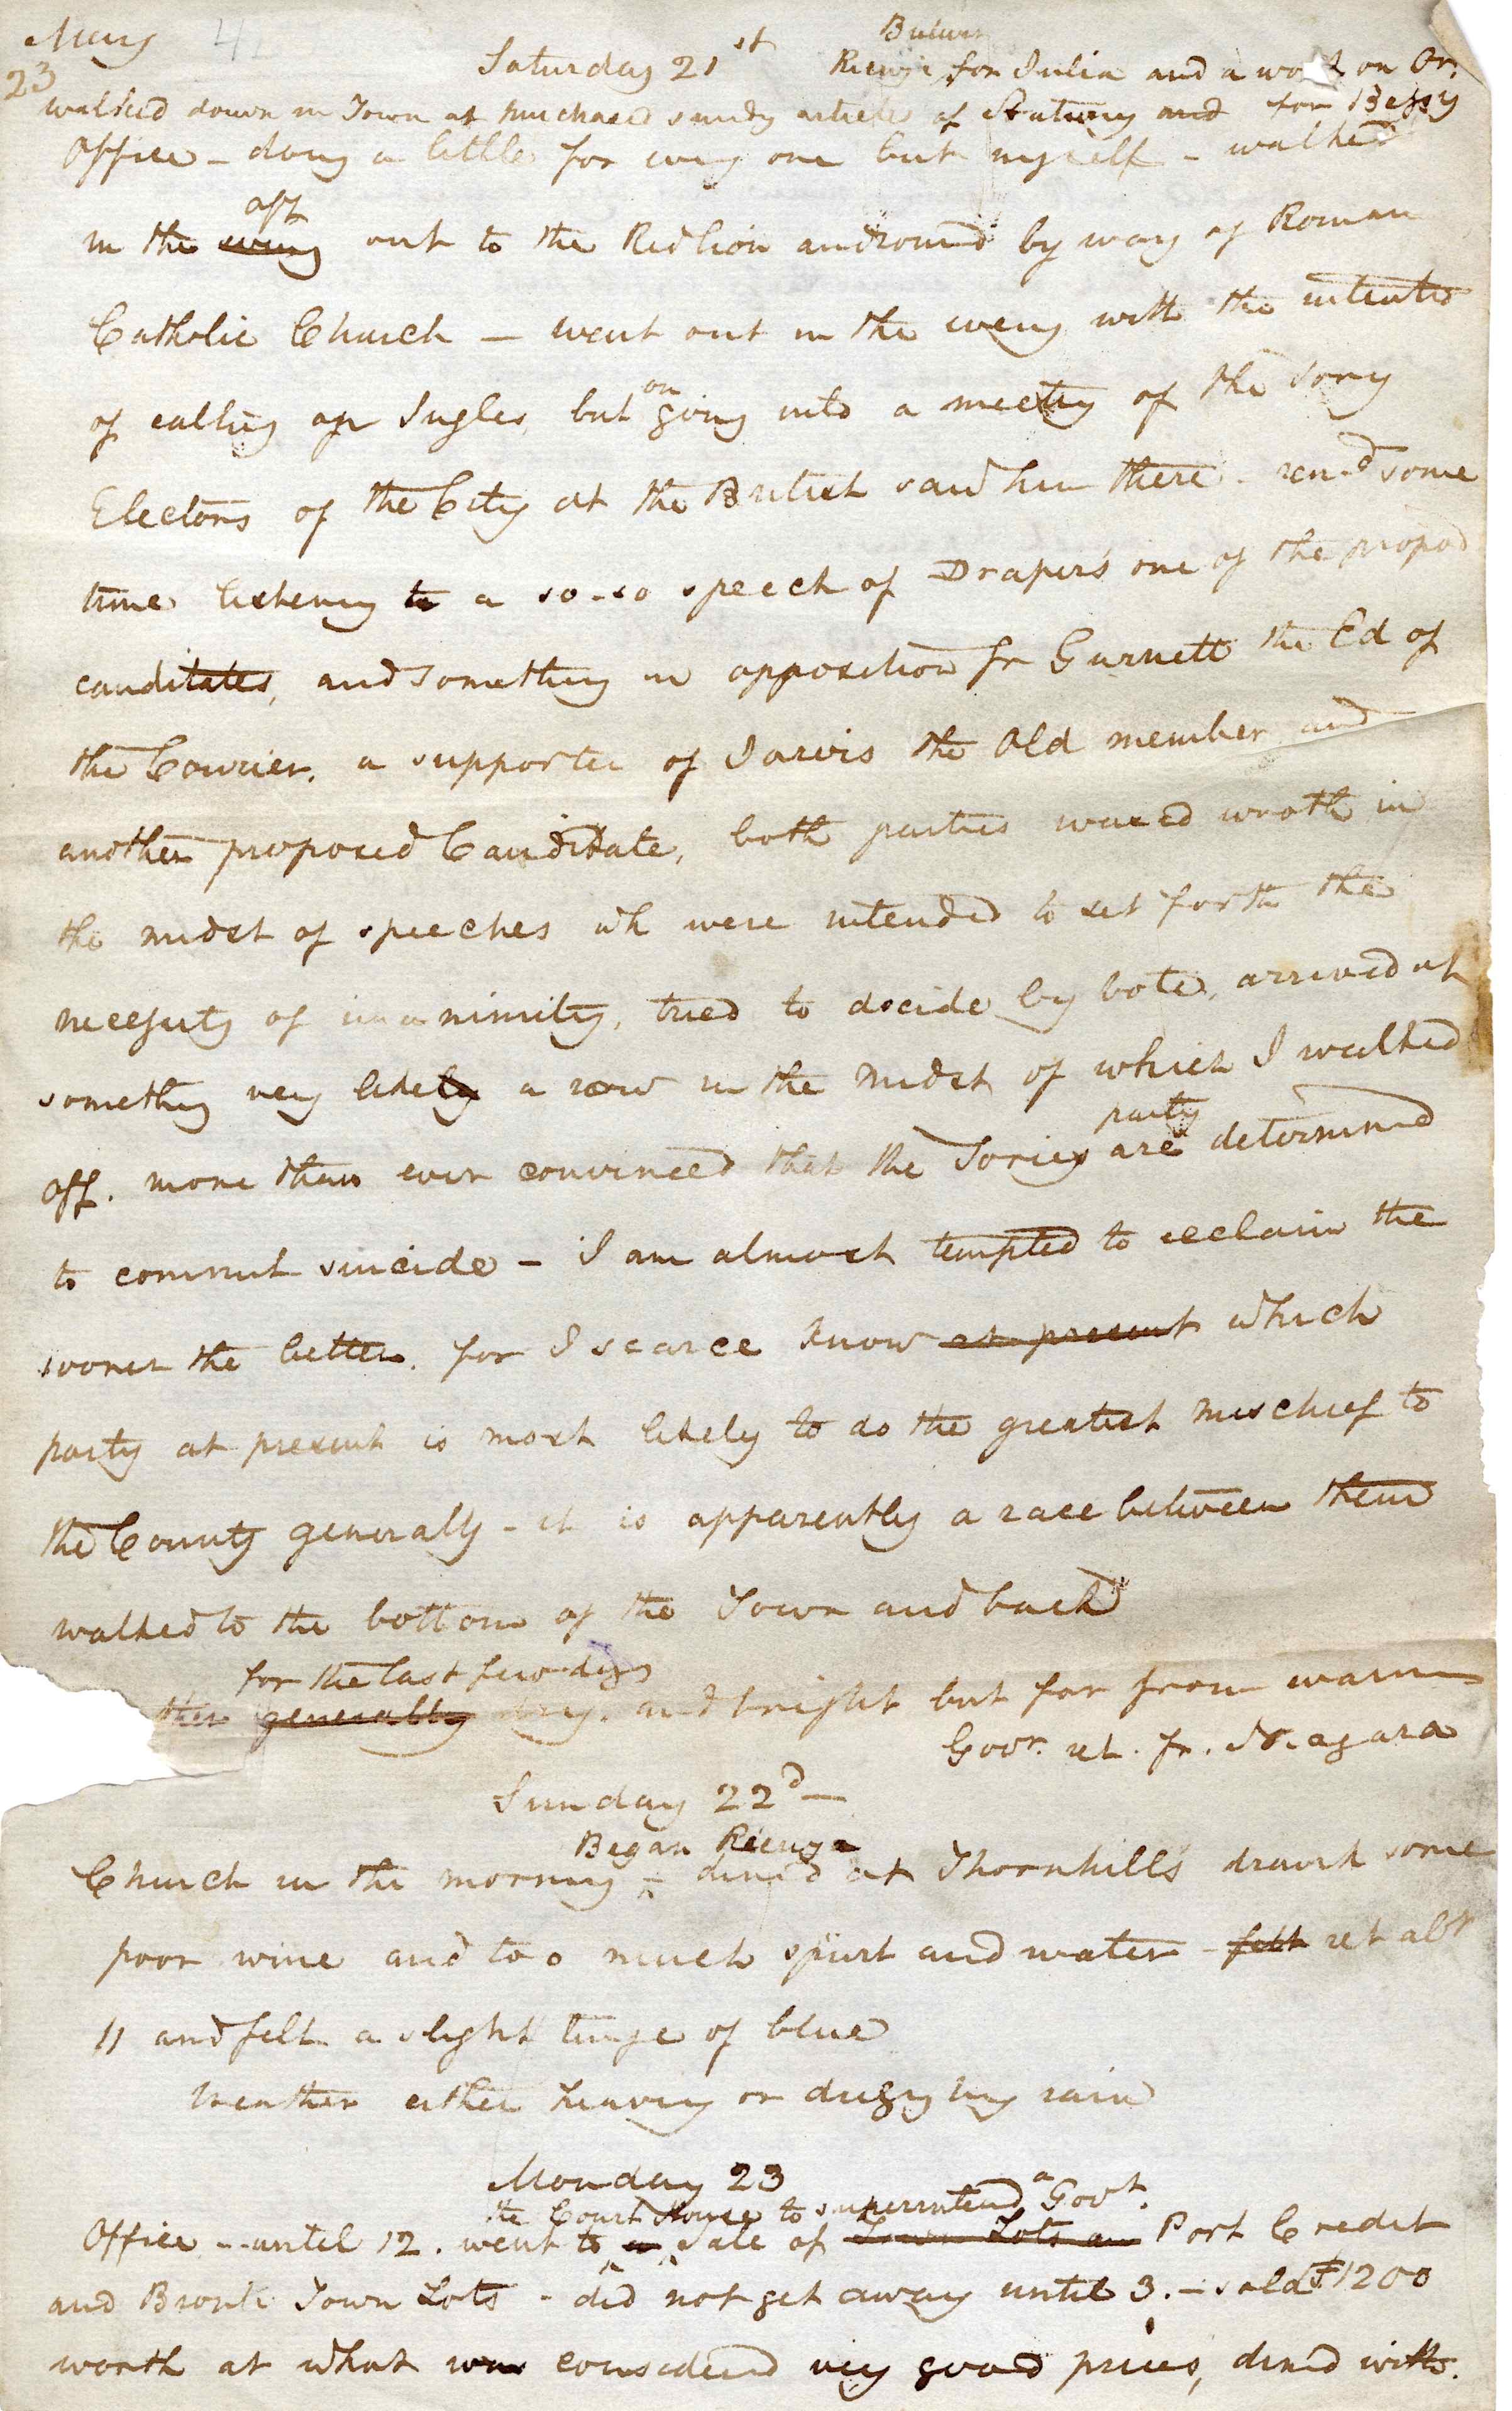 May 4
23
Saturday 21st
Bulwer
Rienzi, for Julia and a work on Or.
walked down in Town at purchased sundry articles of Stationy and for Bessy
Office – doing a little for every one but myself – walked
aft
in the eveng out to the Red Lion and round by way of Roman
Catholic Church – went out in the eveng with the intentio
of calling on Ingles, but on going into a meeting of the Tory
Electors of the City at the British saw him there – remd some
time listening to a so-so speech of Draper's one of the propod
canditates, and something in opposition fr Gurnett the Ed of
the Courier, a supporter of Jarvis the Old member and
another proposed Candidate, both parties waxed wroth in
the midst of speeches wh were intended to set forth the
necessity of unanimity, tried to decide by vote, arrived at
something very likely a row in the midst of which I walked
party
off. more than ever convinced that the Tories are determined
to commit suicide – I am almost tempted to exclaim the
sooner the better. for I scarce know at present which
party at present is most likely to do the greatest mischief to
the County generally – it is apparently a race between them
walked to the bottom of the Town and back
for the last few days
ther generally dry. and bright but far from warm
Govr. ret. fr. Niagara
Sunday 22d –
Began Rienzi
Church in the morning – dined at Thornhill's drank some
poor wine and too much spirit and water – felt ret abt
11 and felt a slight tinge of blue
Weather either heavy or drizzling rain
Monday 23
the Court House to superintend a Govt.
Office – until 12. went to a Sale of Town Lots an Port Credit
and Bronte Town Lots – did not get away until 3. – sold £1200
worth at what was considered very good prices, dined with.